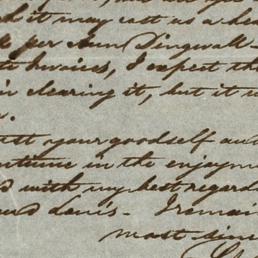 it may cost us a
per Ann Dingwall
invoices, I expect th
in clearing it, but it
your goodself and
continue in the enjoym
with my best regard
and Louis - I remai
most since